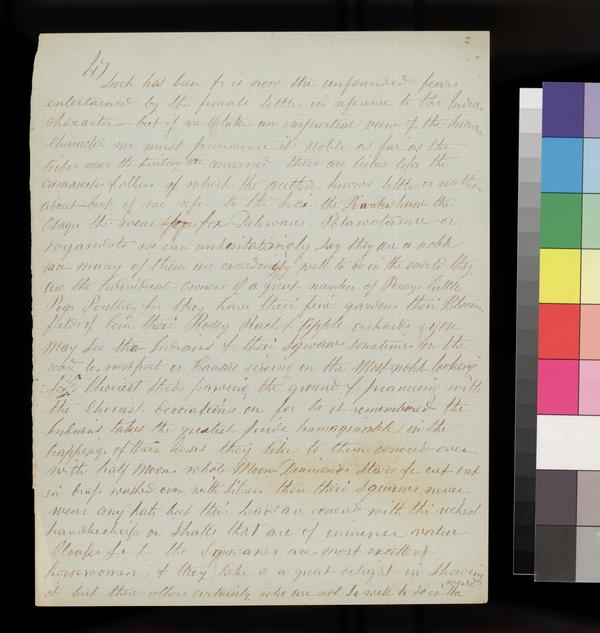 47
Such has been & is now the unfounded fears
entertained by the female settler in reference to the Indian
character — but if we take an impartial view of the Indian
character we must pronounce it noble as far as the
tribes near the territory are concerned there are tribes like the
camanches & others of which the author knows little or nothing
about — but if we refer to the the Kaskaskian the
Osage the Iowas fox Delewares Potawotomie or
Wyandots we can unhesitatingly say they are a noble
race many of them are exceedingly well to do in the world they
are the individual owners of a great number of Poneys Cattle
Pigs Poultry &c they have their fine gardens their Bloom
fields of Corn their Rosey Peach & Apple orchards & you
May see the Indians & their Squaws sometimes on the
road to westport or Kansas riding on the Most noble looking
& Choicest Steeds pawing the ground & pranceing with
the Choicest decorations on for be it remembered the
Indians takes the greatest pride immaginable in the
trappings of their horses they like to them covered over
with half Moons whole Moons Diamonds Stars &c cut out
in brass washed over with Silver then their Squaws never
wear any hats but their heads are covered with the richest
handkechiefs or Shalls that are of immense value
Cloaks &c & the Squawes are most excellent
horsewomen & they take a a great delight in showing
it but there others certainly who are not So well to do in the
world